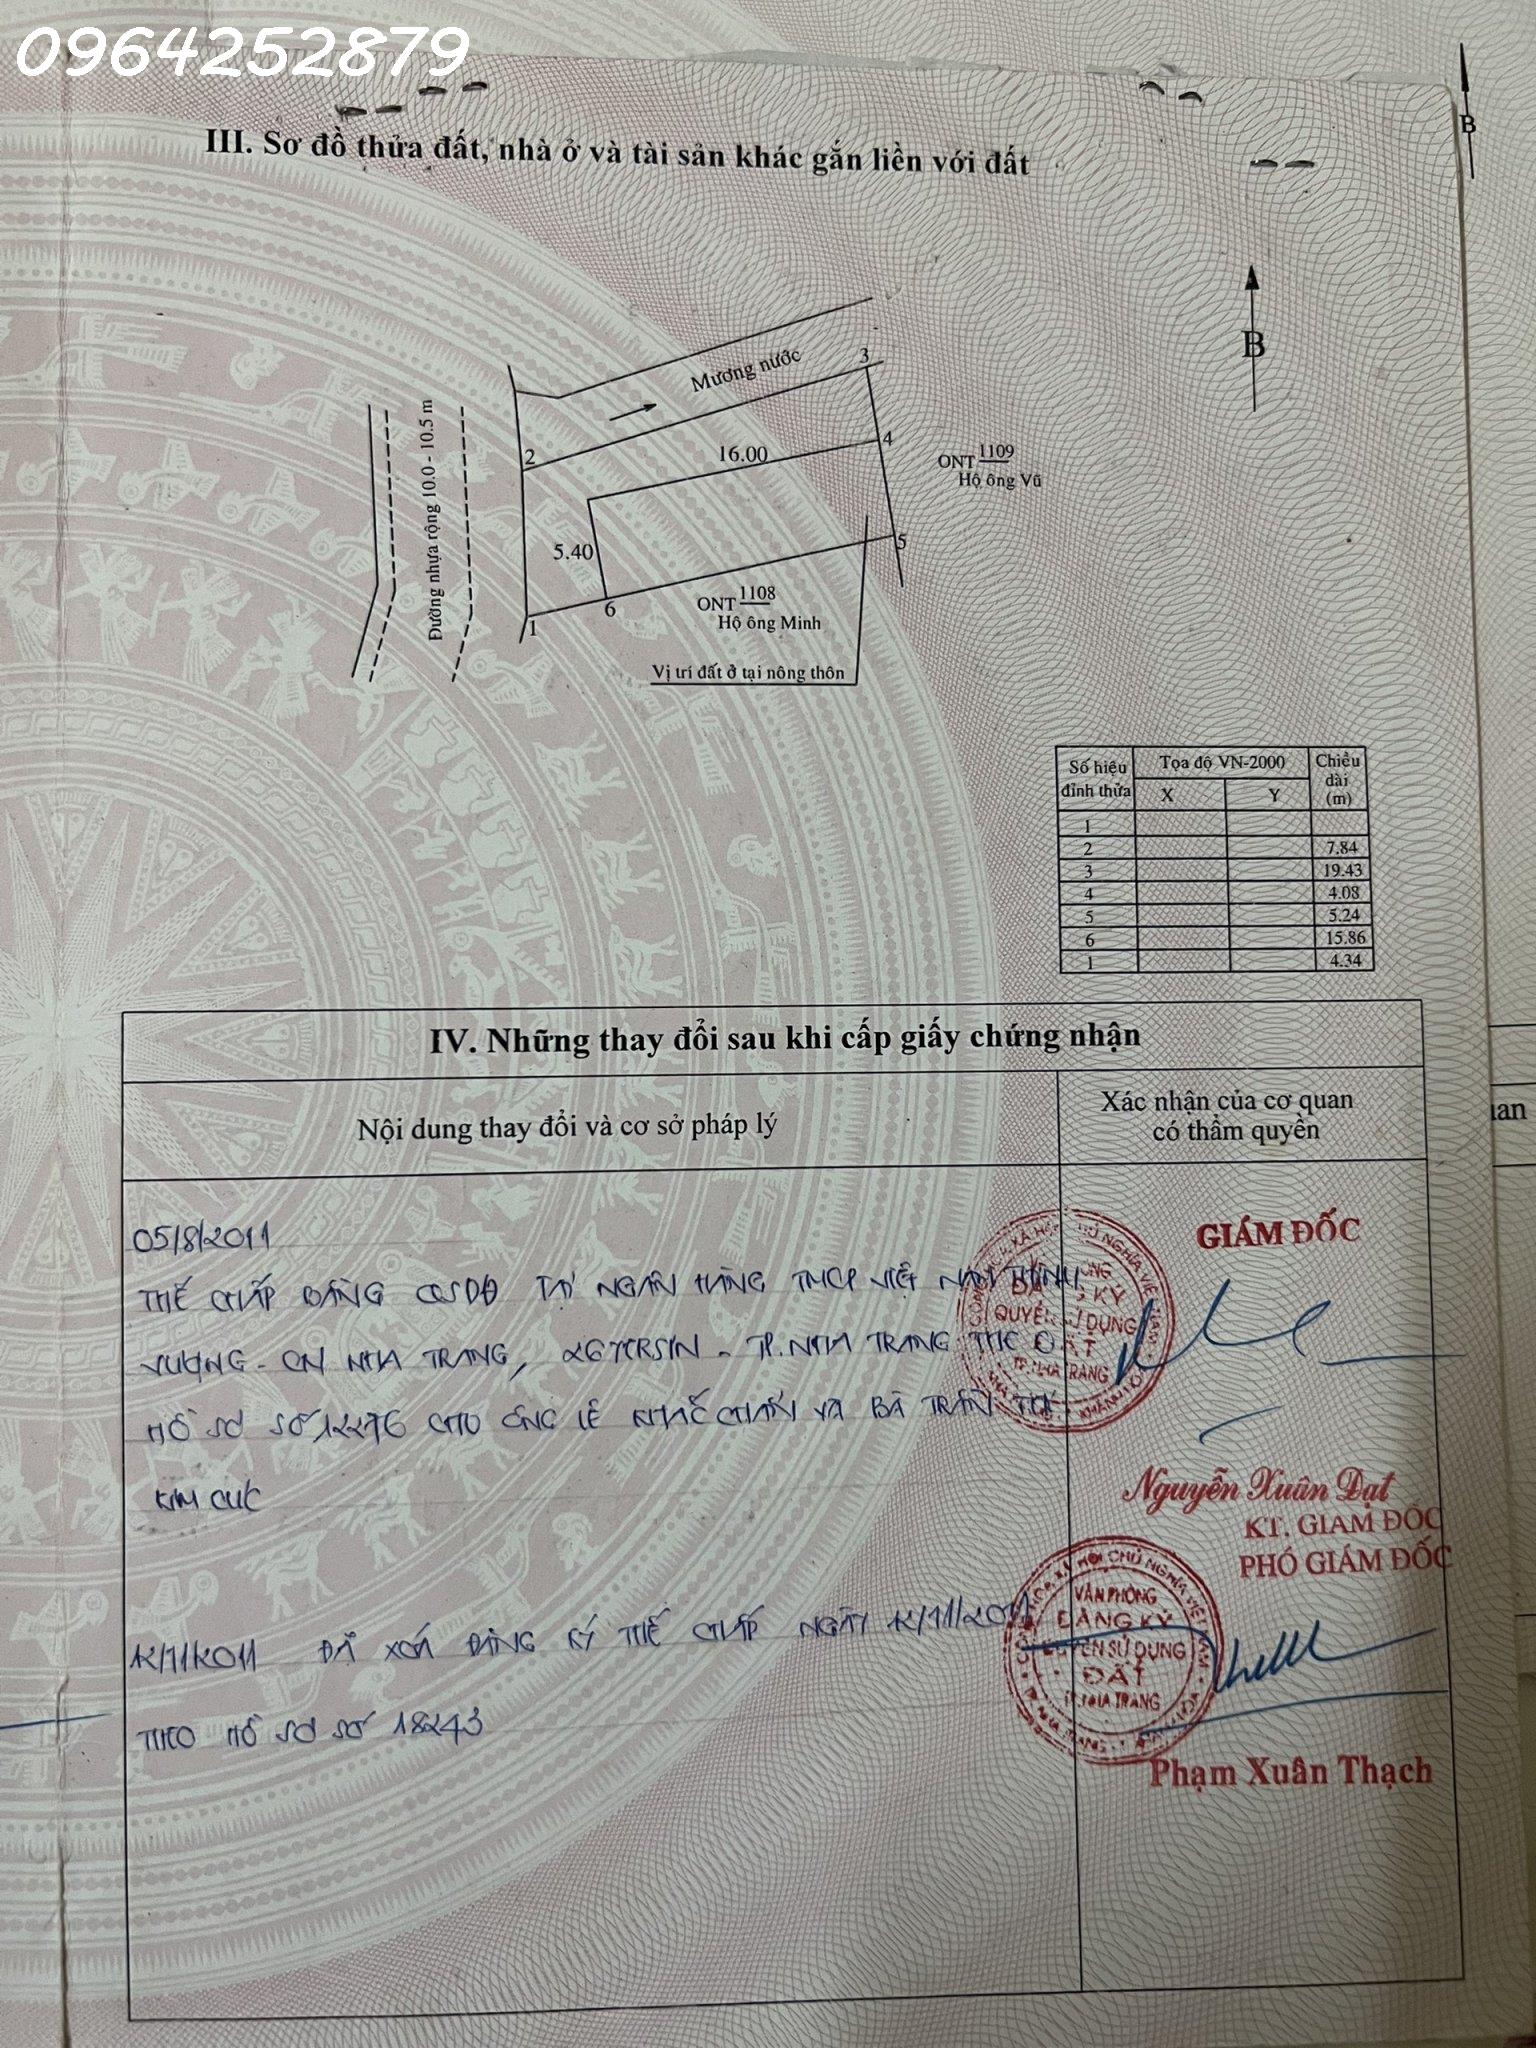 0964252879
III. Sơ đồ thửa đất, nhà ở và tài sản khác gắn liền với đất
B
B
Mương nước
3
2
16.00
4
Đường nhựa rộng 10.0 - 10.5 m
ONT 1109
Hộ ông Vũ
5.40
5
1
6
ONT 1108
Hộ ông Minh
Vị trí đất ở tại nông thôn
Số hiệu đỉnh thửa Tọa độ VN-2000 Chiều dài (m)
X Y
1
2 7.84
3 19.43
4 4.08
5 5.24
6 15.86
1 4.34
IV. Những thay đổi sau khi cấp giấy chứng nhận
Nội dung thay đổi và cơ sở pháp lý
Xác nhận của cơ quan
có thẩm quyền
uan
05/8/2011
THẾ CHẤP BẰNG QSDĐ TẠI NGÂN HÀNG TMCP VIỆT NAM THỊNH
VƯỢNG - CN NHA TRANG, 26 YERSIN - TP. NHA TRANG THEO
HỒ SƠ SỐ 12276 CHO ÔNG LÊ KHẮC CHẤN VÀ BÀ TRẦN THỊ
KIM CÚC
GIÁM ĐỐC
VĂN PHÒNG
ĐĂNG KÝ
QUYỀN SỬ DỤNG
ĐẤT
TP. NHA TRANG
Nguyễn Xuân Đạt
KT. GIÁM ĐỐC
PHÓ GIÁM ĐỐC
12/11/2011 ĐÃ XOÁ ĐĂNG KÝ THẾ CHẤP NGÀY 12/11/2011
THEO HỒ SƠ SỐ 18243
VĂN PHÒNG
ĐĂNG KÝ
QUYỀN SỬ DỤNG
ĐẤT
TP. NHA TRANG
Phạm Xuân Thạch